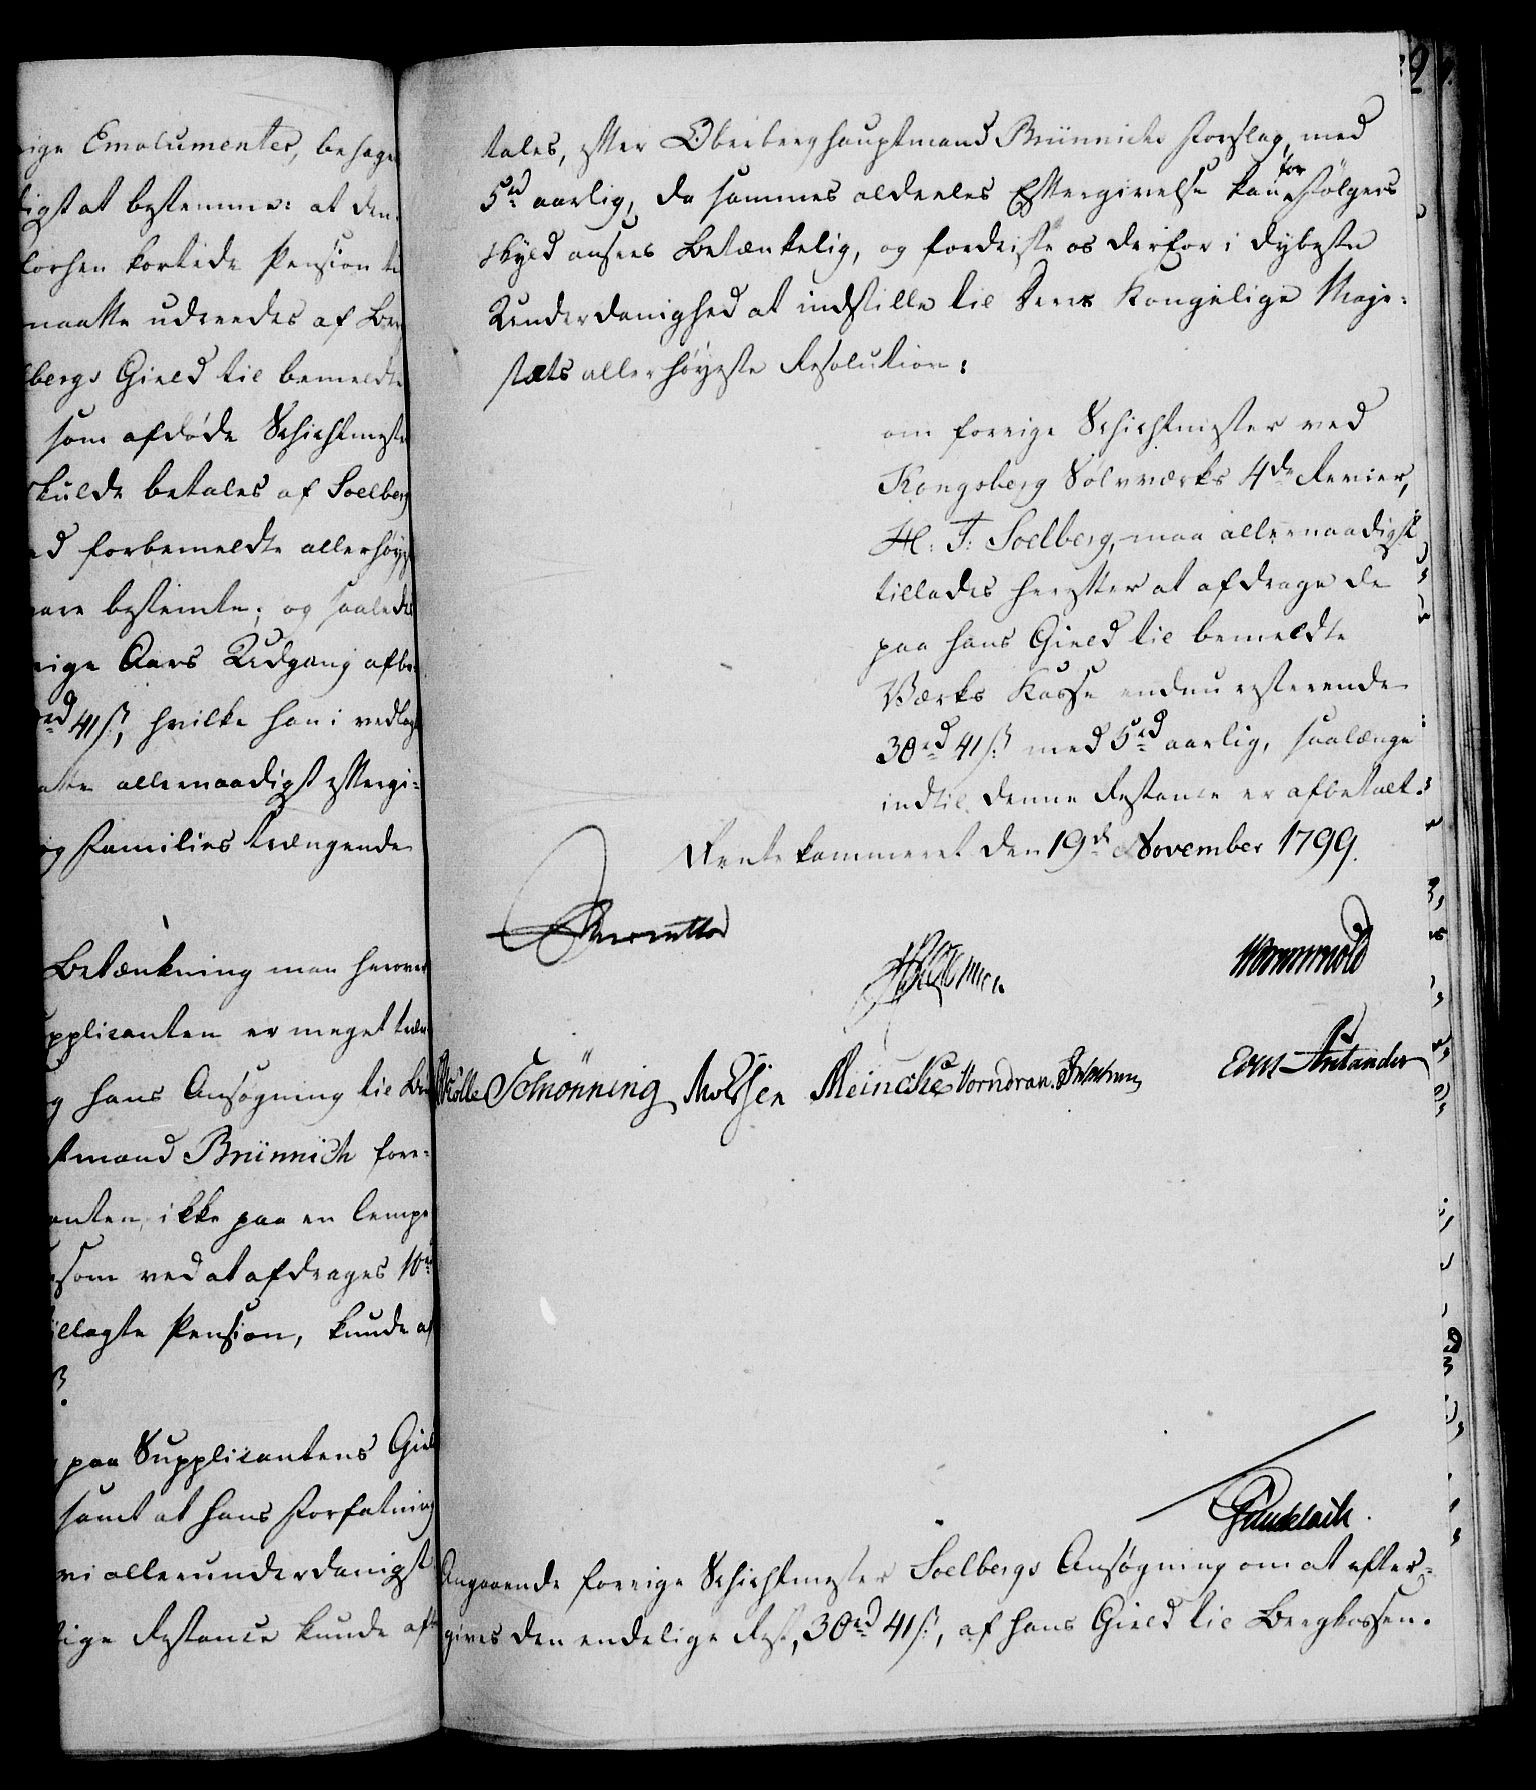 ige Emolumenter, behage
digst at bestemme: at den
korhen kortede Pension ti
maatte udreedes af Ber
lbergs Gield til bemeldte
som afdøde Schichtmester
skulde betales af Soelberg
ed forbemeldte allerhøy
bestemte; og saaledes
rige Aars Udgang afbe
rd 41 ß, hvilke han i vedlagte
allernaadigst eftergi-
og Families trængende
Betænkning man herover
upplicanten er meget træn
g hans Ansøgning til Ber
tmand Brünnich fore-
anten, ikke paa en lempe
som ved at afdrages 10 rd
illagte Pension, kunde af
ß.
paa Supplicantens Gield
samt at hans Forfatning
vi allerunderdanigst
tige Restance kunde af
9
tales, efter Oberberghauptmand Brünnichs Forslag, med
5 rd aarlig, da sammes aldeeles Eftergivelse kan for Følgers
skyld ansees Betænkelig, og fordriste os derfor i dybeste
Underdanighed at indstille til Deres Kongelige Maje-
stæts allerhøyeste Resolution:
om forrige Schichtmester ved
Kongsberg Sølvværks 4de Revier,
H: F: Soelberg, maa allernaadigst
tillades herefter at afdrage de
paa hans Gield til bemeldte
Værks Kasse endnu resterende
30 rd 41 ß med 5 rd aarlig, saalænge
indtil denne Restance er afbetalt.
Rentekammeret den 19de November 1799.
Reventlow
Wormskiold
Mölle Schönning Meincke Vorndran.
Angaaende forrige Schichtmester Soelbergs Ansøgning om at efter-
gives den endelige Rest, 30 rd 41 ß, af hans Gield til Bergkassen.